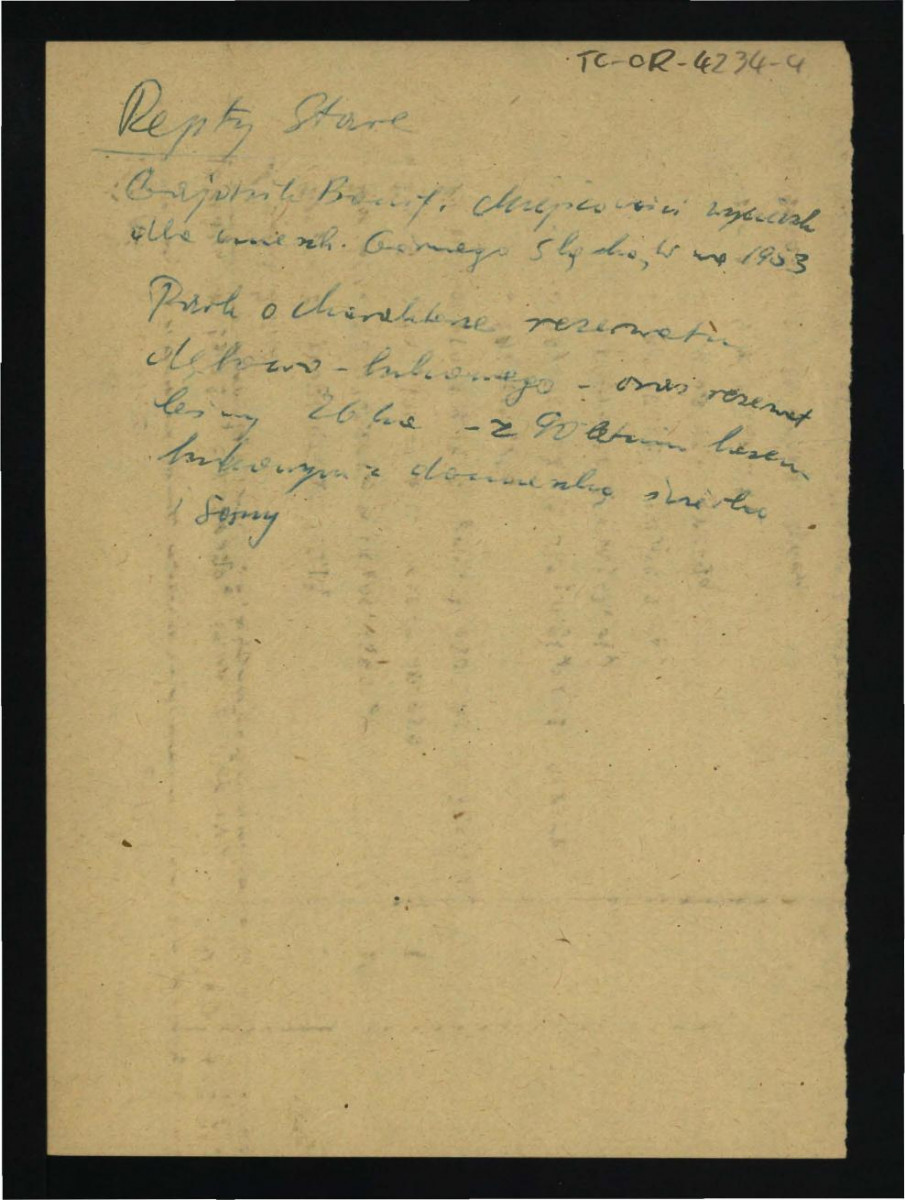 TC-OR-4234-4
Repty Stare
Gajdzik Bonif. Miejscowości wyciecz.
dla miesz. Górnego Śląska, W-wa 1953
Park o charakterze rezerwatu
dębowo-bukowego - oraz rezerwat
leśny 26 ha - z 90 letnim lasem
bukowym z domieszką świerka
i Sosny